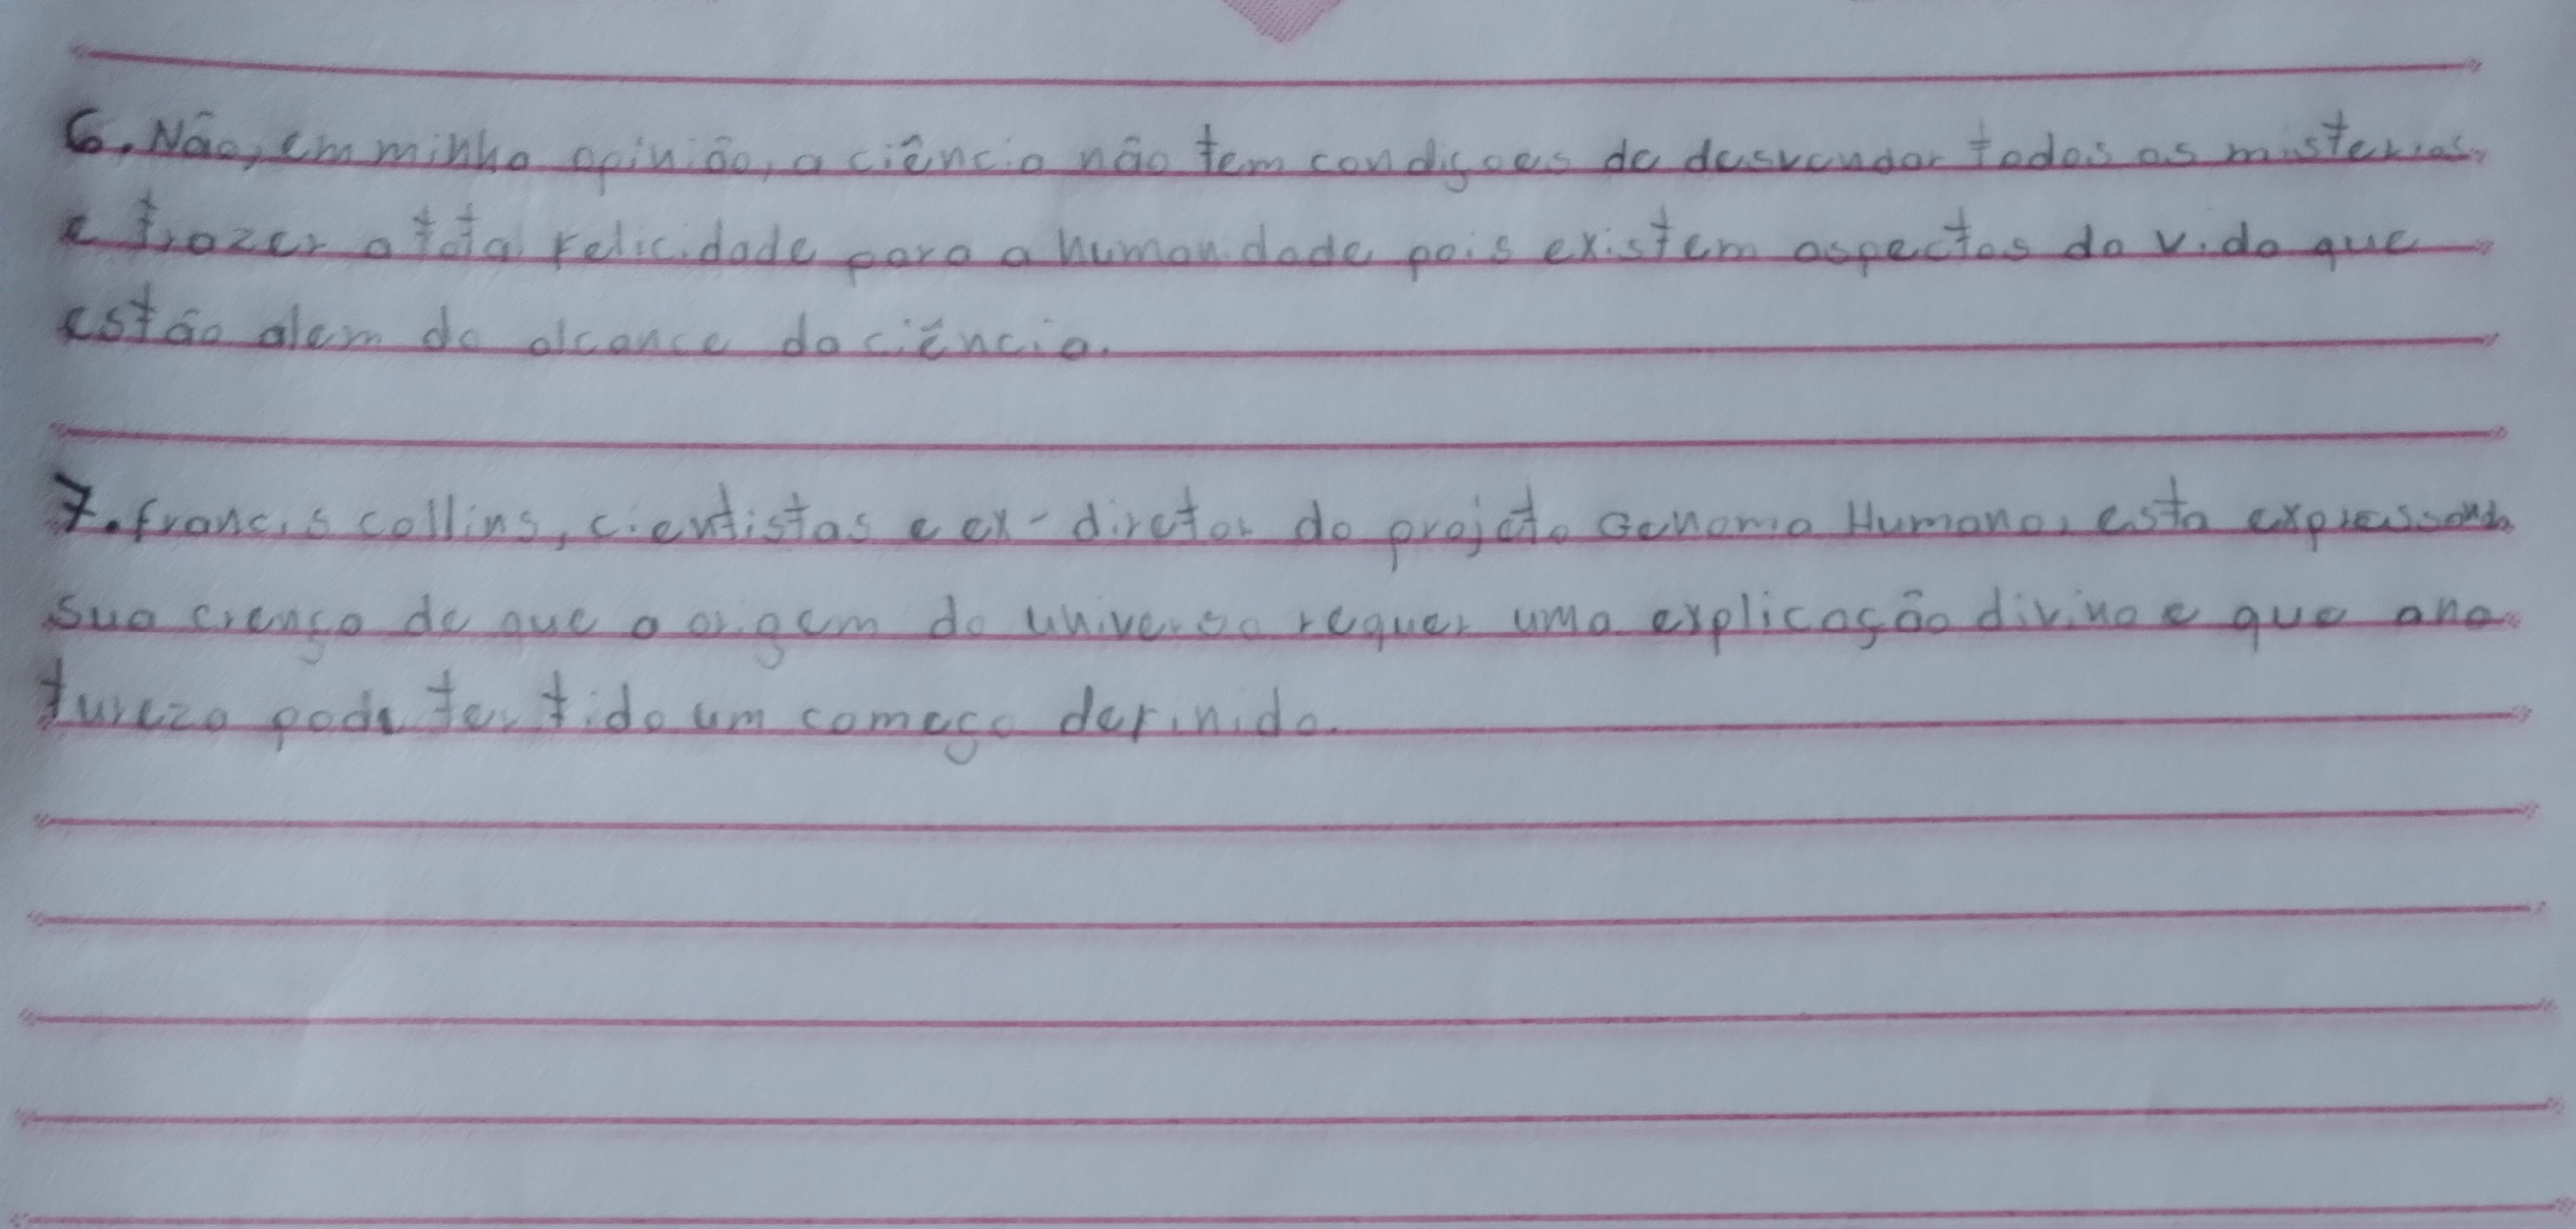 6. Não, em minha opinião, a ciência não tem condiçoes de desvendar todos os misterios
e trazer a tota felicidade para a humanidade pois existem aspectos da vida que
estão alem do alcance da ciência.
7. francis collins, cientistas e ex-diretor do projeto Genoma Humano, esta expressando
sua crença de que a origem do universo requer uma explicação divina e que ana
tureza pode ter tido um começo definido.